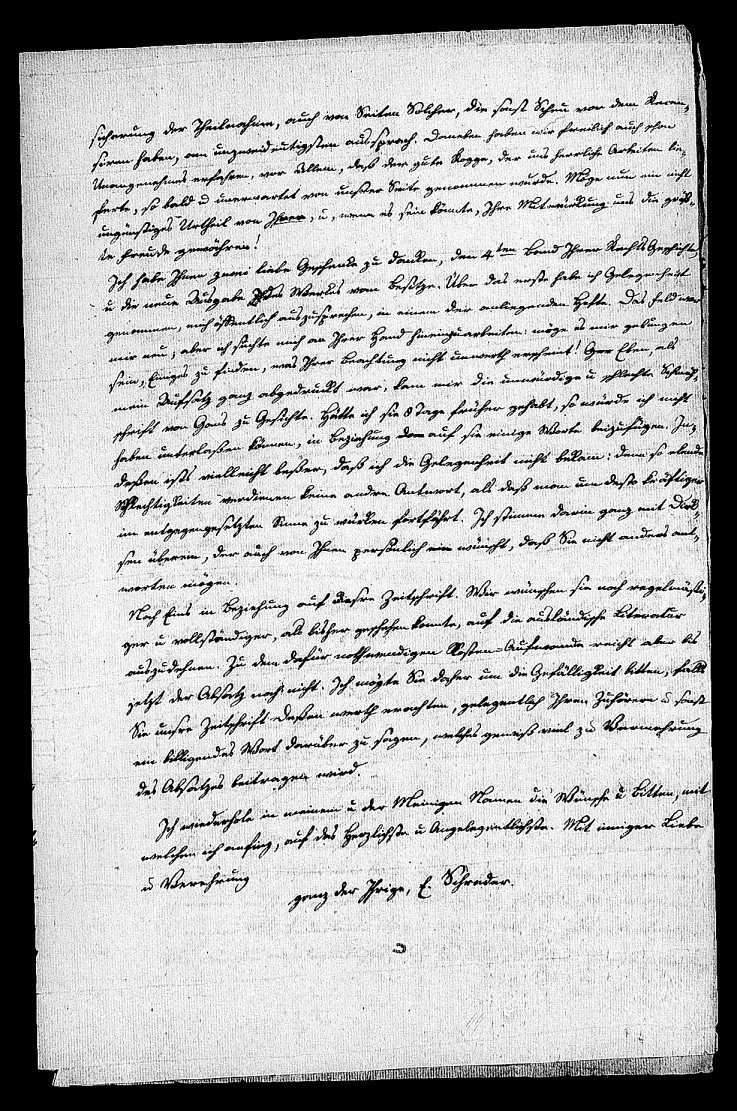 sicherung der Theilnahme, auch von Seiten Solcher, die sonst Scheu vor dem Recen-
siren haben, am unzweideutigsten aussprach. Daneben haben wir freilich auch schon
Unangenehmes erfahren, vor Allem, daß der gute Rogge, der uns herrliche Arbeiten lie-
ferte, so bald u unerwartet von unsrer Seite genommen wurde. Möge nun ein nicht
ungünstiges Urtheil von Ihnen, u, wenn es sein könnte, Ihre Mitwirkung uns die größ-
te Freude gewähren!
Ich habe Ihnen zwei liebe Geschenke zu danken, den 4ten Band Ihrer RechtsGeschichte,
u die neue Ausgabe des Werkes vom Besitze. Über das erste habe ich Gelegenheit
genommen, mich öffentlich auszusprechen, in einem der anliegenden Hefte. Das Feld war
mir neu, aber ich suchte mich an Ihrer Hand hineinzuarbeiten: möge es mir gelungen
sein, Einiges zu finden, was Ihrer Beachtung nicht unwerth erscheint! Gar Eben, als
mein Aufsatz ganz abgedruckt war, kam mir die unwürdige u schlechte Schmäh-
schrift von Gans zu Gesichte. Hätte ich sie 8 Tage früher gehabt, so würde ich nicht
haben unterlaßen können, in Beziehung darauf sie einige Worte beizufügen. In-
deßen ists vielleicht beßer, daß ich die Gelegenheit nicht bekam: denn so elende
Schlechtigkeiten verdienen keine andre Antwort, als daß man um desto kräftiger
im entgegengesetzten Sinne zu würken fortfährt. Ich stimme darin ganz mit Dirk-
sen überein, der auch von Ihnen persönlich nur wünscht, daß Sie nicht anders ant-
worten mögen.
Noch Eins in Beziehung auf unsre Zeitschrift. Wir wünschen sie noch regelmäßi-
ger u vollständiger, als bisher geschehen konnte, auf die ausländische Literatur
auszudehnen. Zu dem dafür nothwendigen Kosten-Aufwande reicht aber bis
jetzt der Absatz noch nicht. Ich mögte Sie daher um die Gefälligkeit bitten, falls
Sie unsre Zeitschrift deßen werth erachten, gelegentlich Ihren Zuhörern u sonst
ein billigendes Wort darüber zu sagen, welches gewiß viel zu Vermehrung
des Absatzes beitragen wird.
Ich wiederhole in meinem u der Meinigen Namen die Wünsche u Bitten, mit
welchen ich anfing, auf das Herzlichste u Angelegentlichste. Mit inniger Liebe
u Verehrung
ganz der Ihrige, E. Schrader.